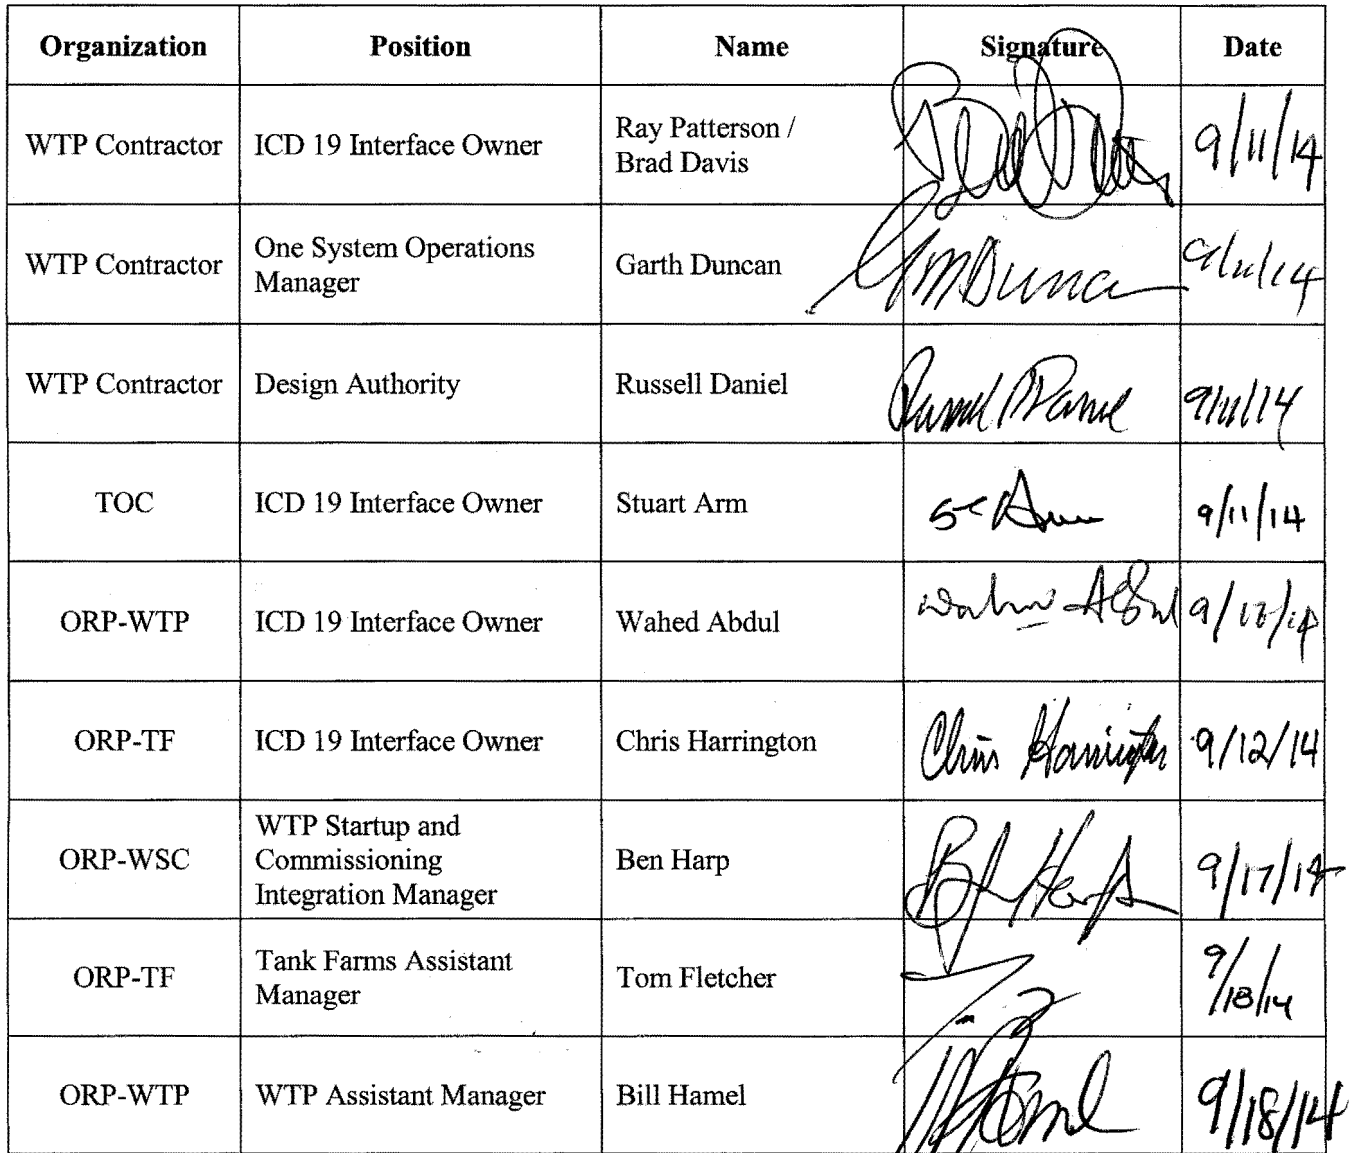 Organization Position Name Signature Date
WTP Contractor ICD 19 Interface Owner Ray Patterson / Brad Davis Brad Davis 9/11/14
WTP Contractor One System Operations Manager Garth Duncan GMDuncan 9/11/14
WTP Contractor Design Authority Russell Daniel Russell Daniel 9/11/14
TOC ICD 19 Interface Owner Stuart Arm 9/11/14
ORP-WTP ICD 19 Interface Owner Wahed Abdul Wahed Abdul
ORP-TF ICD 19 Interface Owner Chris Harrington Chris Harrington 9/12/14
ORP-WSC WTP Startup and Commissioning Integration Manager Ben Harp Ben Harp 9/17/14
ORP-TF Tank Farms Assistant Manager Tom Fletcher 9/18/14
ORP-WTP WTP Assistant Manager Bill Hamel 9/18/14